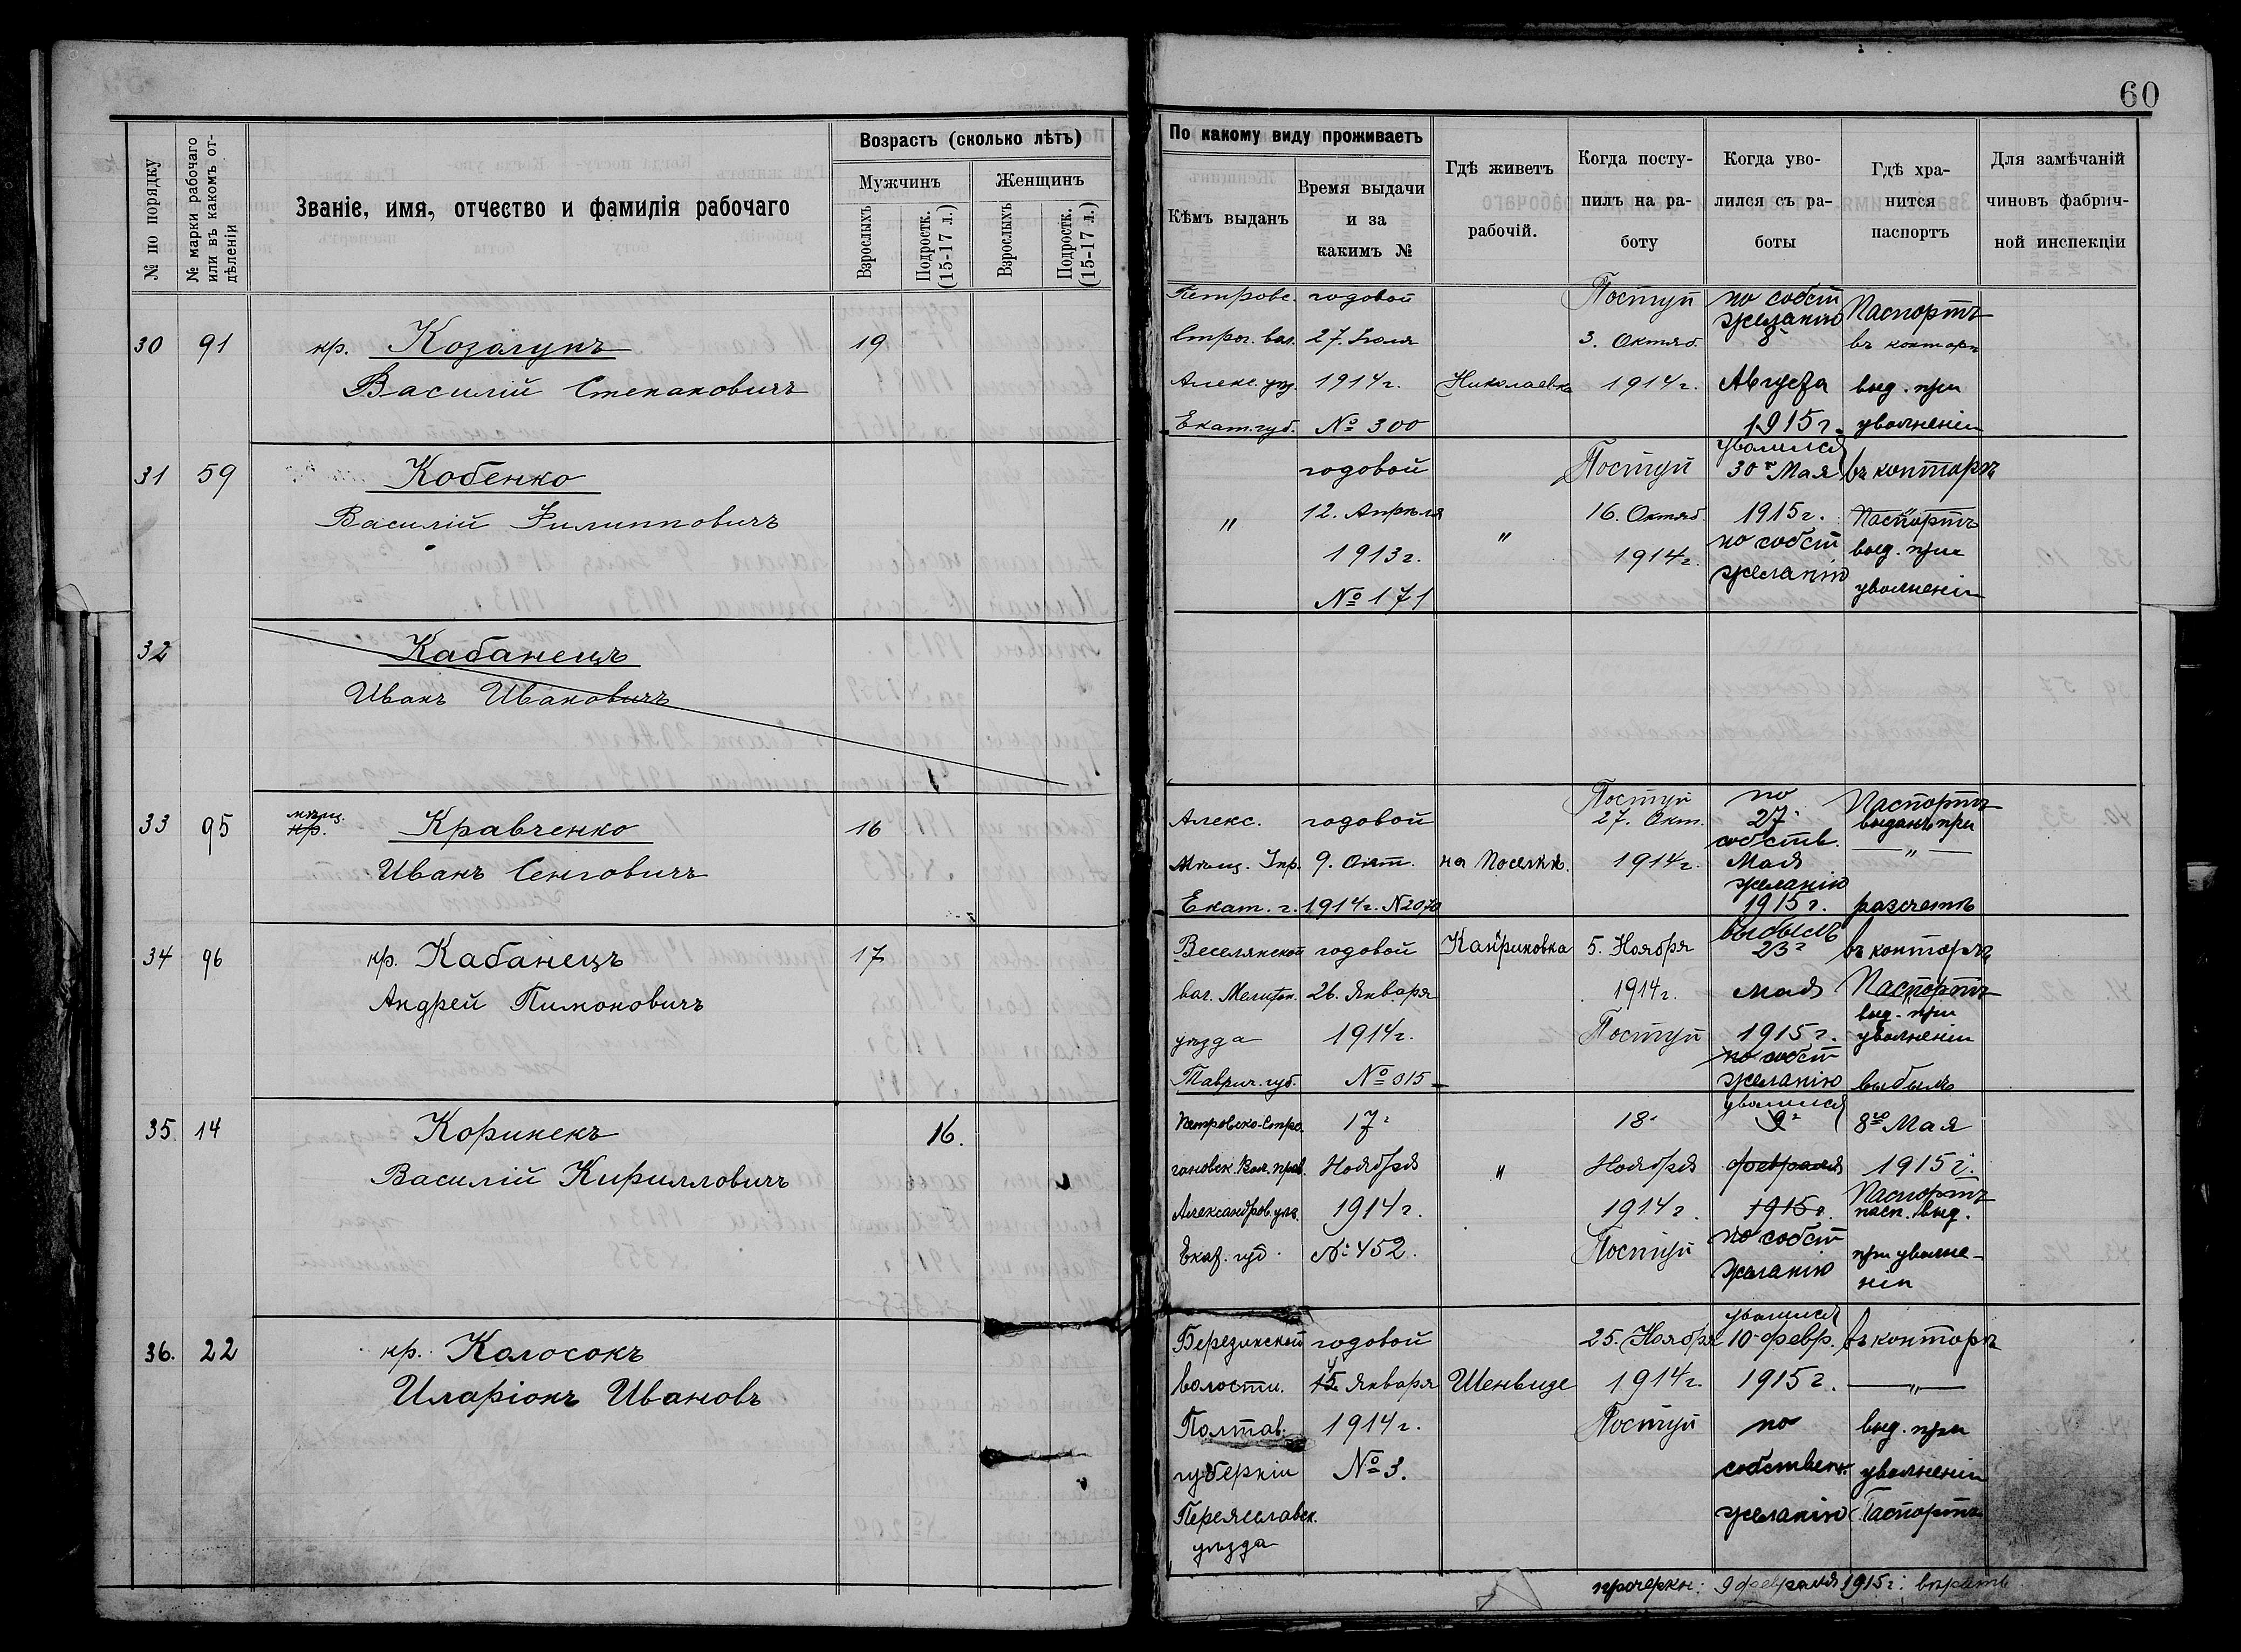 60
№ по порядку
№ марки рабочаго или въ какомъ отдѣленіи
Званіе, имя, отчество и фамилія рабочаго
Возрастъ (сколько лѣтъ)
Мужчинъ
Женщинъ
Взрослыхъ
Подростк. (15-17 л.)
Взрослыхъ
Подростк. (15-17 л.)
По какому виду проживаетъ
Кѣмъ выданъ
Время выдачи
и за
какимъ №
Гдѣ живетъ
рабочій.
Когда посту-
пилъ на ра-
боту
Когда уво-
лился съ ра-
боты
Гдѣ хра-
нится
паспортъ
Для замѣчаній
чиновъ фабрич-
ной инспекціи
30 91 кр. Козалупъ 19
Василій Степановичъ
Петровс.
Строг. вол.
Алекс. уѣз.
Екат. губ.
годовой
27. Іюля
1914 г.
№ 300
Николаевка
Поступ
3. Октяб.
1914 г.
по собст
желанію
8
Августа
1915 г.
Паспортъ
въ конторѣ
выд. при
увольненіи
31 59 Кобенко
Василій Филипповичъ
"
годовой
12. Апрѣля
1913 г.
№ 171
"
Поступ
16. Октяб.
1914 г.
уволился
30 г Мая
1915 г.
по собст
желанію
въ конторѣ
Паспортъ
выд. при
увольненіи
32 Кабанецъ
Иванъ Ивановичъ
33 95 мѣщ. кр. Кравченко 16
Иванъ Сенговичъ
Алекс.
мѣщ. Упр.
Екат. г.
годовой
9. Окт.
1914 г. N 2070
на Поселкѣ.
Поступ
27. Окт.
1914 г.
по
27
собств.
Мая
желанію
1915 г.
Паспортъ
выданъ при
— " —
разсчетѣ
34 96 кр. Кабанецъ 17
Андрей Пимоновичъ
Веселянской
вол. Мелитоп.
уѣзда
Таврич. губ.
годовой
26. Января
1914 г.
№ 015
Каприковка
5. Ноября
1914 г.
Поступ
выбылъ
23 г
Мая
1915 г.
по собст
желанію
въ конторѣ
Паспортъ
выд. при
увольненіи
выбылъ
35. 14 Коринекъ 16.
Василій Кирилловичъ
Петровско-Стро
гановск. Вол. прав.
Александров. уѣз.
Екат. губ.
17 г
Ноября
1914 г.
№ 452.
"
18
Ноября
1914 г.
Поступ
уволился
9 г
февраля
1915 г.
по собст
желанію
8го Мая
1915 г.
Паспортъ
пасп. выд.
при увольне-
ніи
36. 22 кр. Колосокъ
Иларіонъ Ивановъ
Березинской
волости.
Полтав.
губерніи
Переяславск.
уѣзда
годовой
15. Января
1914 г.
№ 3.
Шенвизе
25. Ноября
1914 г.
Поступ
уволился
10 февр.
1915 г.
по
собственн.
желанію
въ конторѣ
— " —
выд. при
увольненіи
Паспортъ
прочеркн: 9 февраля 1915 г. вѣрить